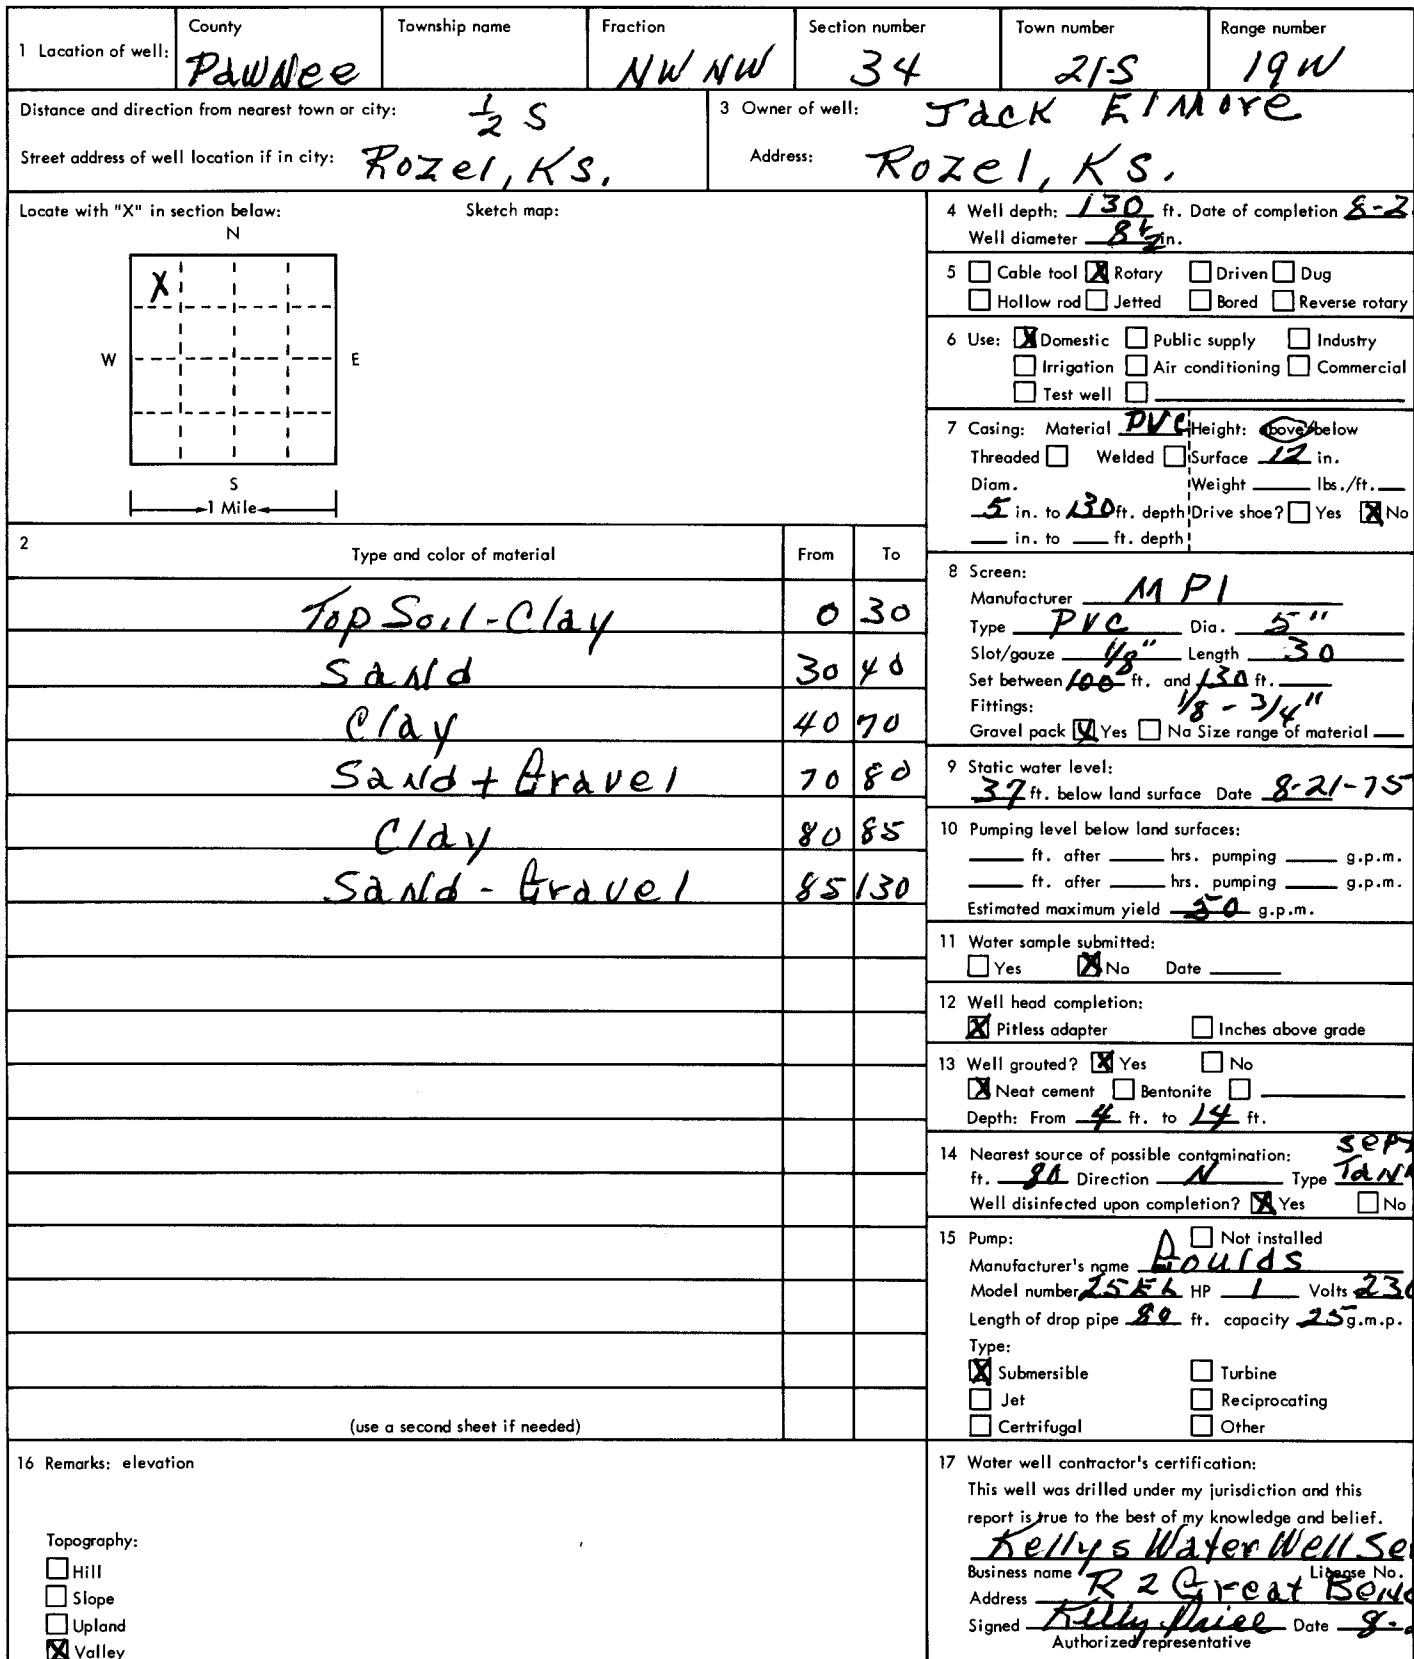 1 Location of well: County Township name Fraction Section number Town number Range number
Pawnee NW NW 34 21-S 19W
Distance and direction from nearest town or city: 1/2 S
Street address of well location if in city: Rozel, KS.
3 Owner of well: Jack Elmore
Address: Rozel, KS.
Locate with "X" in section below: Sketch map:
N
X
W E
S
1 Mile
2 Type and color of material From To
Top Soil - Clay 0 30
Sand 30 40
Clay 40 70
Sand + Gravel 70 80
Clay 80 85
Sand - Gravel 85 130
(use a second sheet if needed)
4 Well depth: 130 ft. Date of completion 8-2
Well diameter 8 1/2 in.
5 Cable tool X Rotary Driven Dug
Hollow rod Jetted Bored Reverse rotary
6 Use: X Domestic Public supply Industry
Irrigation Air conditioning Commercial
Test well
7 Casing: Material PVC Height: above/below
Threaded Welded Surface 12 in.
Diam. Weight lbs./ft.
5 in. to 130 ft. depth Drive shoe? Yes X No
in. to ft. depth
8 Screen:
Manufacturer MPI
Type PVC Dia. 5"
Slot/gauze 1/8" Length 30
Set between 100 ft. and 130 ft.
Fittings: 1/8 - 3/4"
Gravel pack X Yes No Size range of material
9 Static water level:
37 ft. below land surface Date 8-21-75
10 Pumping level below land surfaces:
ft. after hrs. pumping g.p.m.
ft. after hrs. pumping g.p.m.
Estimated maximum yield 50 g.p.m.
11 Water sample submitted:
Yes X No Date
12 Well head completion:
X Pitless adapter Inches above grade
13 Well grouted? X Yes No
X Neat cement Bentonite
Depth: From 4 ft. to 14 ft.
14 Nearest source of possible contamination: Sept
ft. 80 Direction N Type Tank
Well disinfected upon completion? X Yes No
15 Pump: Not installed
Manufacturer's name Goulds
Model number 25EL HP 1 Volts 230
Length of drop pipe 80 ft. capacity 25 g.m.p.
Type:
X Submersible Turbine
Jet Reciprocating
Certrifugal Other
16 Remarks: elevation
Topography:
Hill
Slope
Upland
X Valley
17 Water well contractor's certification:
This well was drilled under my jurisdiction and this
report is true to the best of my knowledge and belief.
Kellys Water Well Se
Business name License No.
Address R 2 Great Bend
Signed Kelly Date 8-
Authorized representative